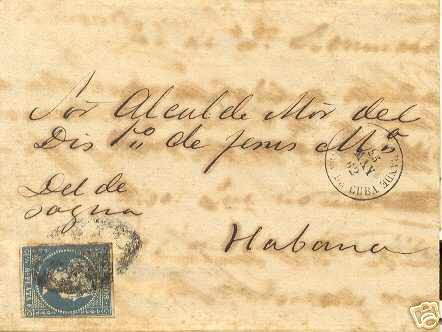 Sor Alcalde Mor del
Dis to de Jesus Ma
Del de
Sagua
25
MAY
62
DE CUBA
Habana